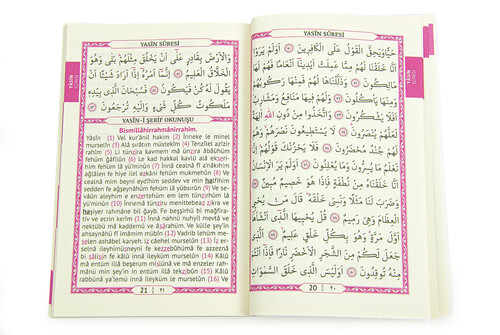 YASÎN SÛRESİ
حَيًّا وَيَحِقَّ الْقَوْلُ عَلَى الْكَافِرِينَ ﴿٧٠﴾ اَوَلَمْ يَرَوْا
اَنَّا خَلَقْنَا لَهُمْ مِمَّا عَمِلَتْ اَيْدِينَا اَنْعَامًا فَهُمْ لَهَا
مَالِكُونَ ﴿٧١﴾ وَذَلَّلْنَاهَا لَهُمْ فَمِنْهَا رَكُوبُهُمْ
وَمِنْهَا يَأْكُلُونَ ﴿٧٢﴾ وَلَهُمْ فِيهَا مَنَافِعُ وَمَشَارِبُ
اَفَلَا يَشْكُرُونَ ﴿٧٣﴾ وَاتَّخَذُوا مِنْ دُونِ اللهِ اٰلِهَةً
لَعَلَّهُمْ يُنْصَرُونَ ﴿٧٤﴾ لَا يَسْتَطِيعُونَ نَصْرَهُمْ وَهُمْ
لَهُمْ جُنْدٌ مُحْضَرُونَ ﴿٧٥﴾ فَلَا يَحْزُنْكَ قَوْلُهُمْ اِنَّا
نَعْلَمُ مَا يُسِرُّونَ وَمَا يُعْلِنُونَ ﴿٧٦﴾ اَوَلَمْ يَرَ الْاِنْسَانُ
اَنَّا خَلَقْنَاهُ مِنْ نُطْفَةٍ فَاِذَا هُوَ خَصِيمٌ مُبِينٌ ﴿٧٧﴾
وَضَرَبَ لَنَا مَثَلًا وَنَسِيَ خَلْقَهُ قَالَ مَنْ يُحْيِي
الْعِظَامَ وَهِيَ رَمِيمٌ ﴿٧٨﴾ قُلْ يُحْيِيهَا الَّذِي اَنْشَاَهَا
اَوَّلَ مَرَّةٍ وَهُوَ بِكُلِّ خَلْقٍ عَلِيمٌ ﴿٧٩﴾ الَّذِي
جَعَلَ لَكُمْ مِنَ الشَّجَرِ الْاَخْضَرِ نَارًا فَاِذَا اَنْتُمْ
مِنْهُ تُوقِدُونَ ﴿٨٠﴾ اَوَلَيْسَ الَّذِي خَلَقَ السَّمٰوَاتِ
20 ٢٠
YASİN SÛRESİ
YASÎN SÛRESİ
وَالْاَرْضَ بِقَادِرٍ عَلٰى اَنْ يَخْلُقَ مِثْلَهُمْ بَلٰى وَهُوَ
الْخَلَّاقُ الْعَلِيمُ ﴿٨١﴾ اِنَّمَا اَمْرُهُ اِذَا اَرَادَ شَيْئًا اَنْ
يَقُولَ لَهُ كُنْ فَيَكُونُ ﴿٨٢﴾ فَسُبْحَانَ الَّذِي بِيَدِهِ
مَلَكُوتُ كُلِّ شَيْءٍ وَاِلَيْهِ تُرْجَعُونَ ﴿٨٣﴾
YASÎN-İ ŞERİF OKUNUŞU
Bismillâhirrahmânirrahîm.
Yâsîn (1) Vel kur'ânil hakim (2) İnneke le minel
murselîn (3) Alâ sırâtım müstekîm (4) Tenzîlel azîzir
rahîm (5) Li tünzira kavmem mâ ünzira âbâühüm
fehüm ğâfilûn (6) Le kad hakkal kavlü alâ ekseri-
him fehüm lâ yü'minûn (7) İnnâ cealnâ fî a'nâkıhim
ağlâlen fe hiye ilel ezkâni fehüm mukmehûn (8) Ve
cealnâ mim beyni eydîhim sedden ve min halfihim
sedden fe ağşeynâhüm fehüm lâ yübsırûn (9) Ve se-
vâün aleyhim e enzertehüm em lem tünzirhüm lâ
yü'minûn (10) İnnemâ tünziru menittebeaz zikra ve
haşiyer rahmâne bil ğayb. Fe beşşirhü bi mağfira-
tiv ve ecrin kerîm (11) İnnâ nahnü nuhyil mevtâ ve
nektübü mâ kaddemû ve âsârahüm. Ve külle şey'in
ahsaynâhü fî imâmim mübîn (11) Vadrib lehüm me-
selen ashâbel karyeh. İz câehel murselûn (13) İz er-
selnâ ileyhimüsneyni fe kezzebûhümâ fe azzeznâ
bi sâlisin fe kâlû innâ ileyküm murselûn (14) Kâlû
mâ entüm illâ beşerum mislünâ ve mâ enzeler rah-
mânü min şey'in in entüm illâ tekzibûn (15) Kâlû
rabbünâ ya'lemü innâ ileyküm le murselûn (16) Ve
21 ٢١
YASİN SÛRESİ